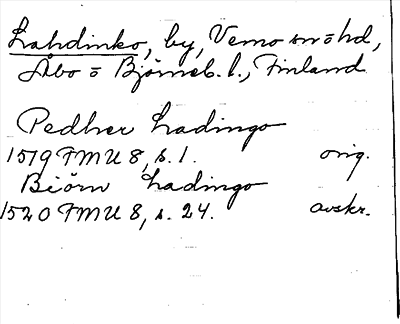 Lahdinko, by, Vemo sn o hd,
Åbo o Björneb. l., Finland
Pedher Ladingo
1519 FMU 8, s. 1. orig.
Biörn Ladingo
1520 FMU 8, s. 24. avskr.